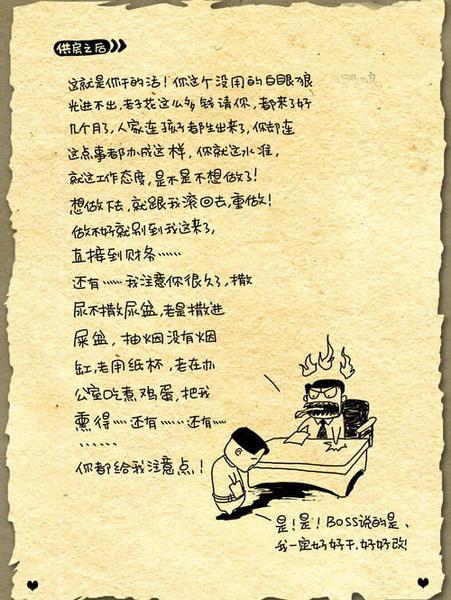 供房之后
这就是你干的活！你这个没用的白眼狼
光进不出，老子花这么多钱请你，都来了好
几个月了，人家连孩子都生出来了，你却连
这点事都办成这样，你就这水准，
就这工作态度，是不是不想做了！
想做下去，就跟我滚回去，重做！
做不好就别到我这来了，
直接到财务……
还有……我注意你很久了，撒
尿不撒尿盆，老是撒进
屎盆，抽烟没有烟
缸，老用纸杯，老在办
公室吃煮鸡蛋，把我
熏得……还有……还有……
……
你都给我注意点！
是！是！BOSS说的是、
我一定好好干，好好改！